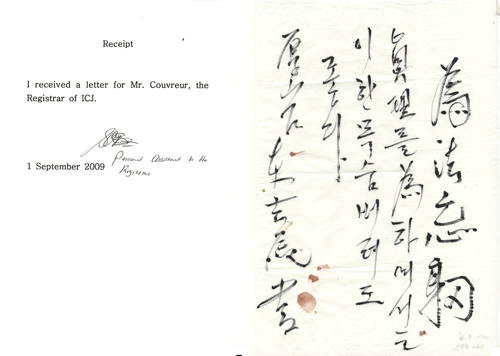 Receipt
I received a letter for Mr. Couvreur, the
Registrar of ICJ.
1 September 2009 Personal Assistant to the
Registrar
爲法忘軀
眞理를 爲하여서는
이 한 목숨 버려도